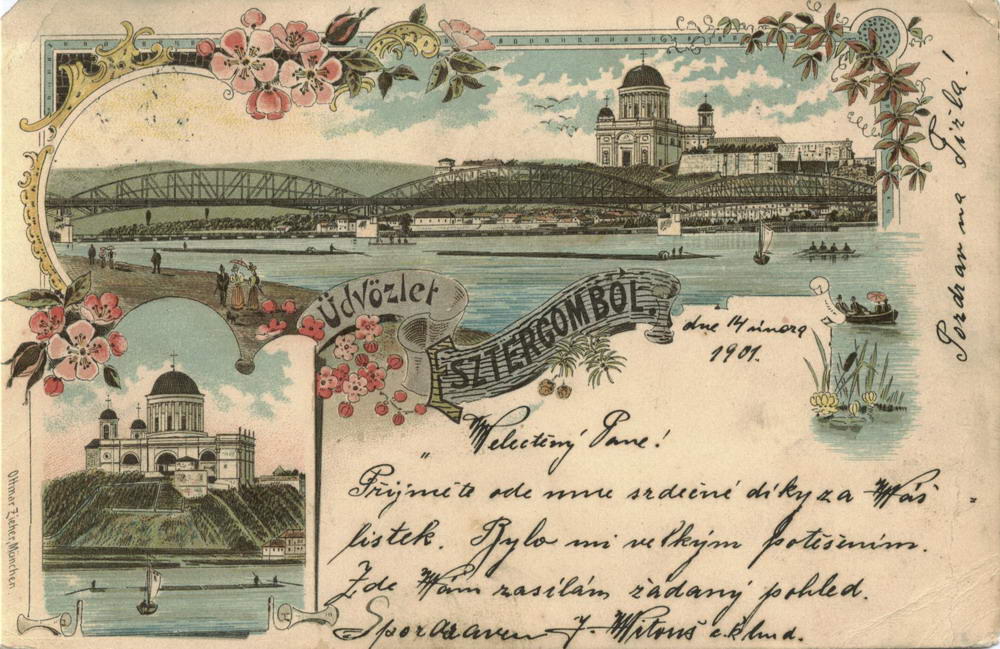 Üdvözlet
ESZTERGOMBÓL.
dne 14 února
1901.
Welectěný Pane!
Přijměte ode mne srdečné díky za Wáš
lístek. Bylo mi velkým potěšením.
Zde Wám zasílám žádaný pohled.
S pozdravem J.
Pozdrav na
Ottmar Zieher, München